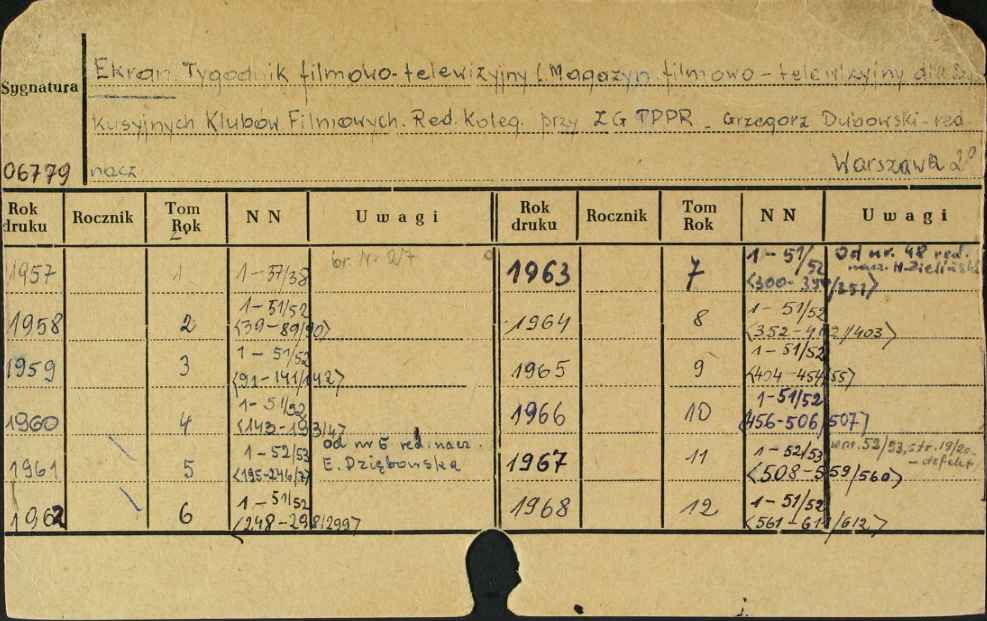 Sygnatura
Ekran. Tygodnik filmowo-telewizyjny (Magazyn filmowo-telewizyjny dla Dys
kusyjnych Klubów Filmowych. Red. Koleg. przy ZG TPPR - Grzegorz Dubowski-red.
06779 nacz. Warszawa 2°
Rok druku Rocznik Tom Rok NN Uwagi Rok druku Rocznik Tom Rok NN Uwagi
1957 1 1-37/38 br. Nr 2/7
1958 2 1-51/52 <39-89/90>
1959 3 1-51/52 <91-141/142>
1960 4 1-51/52 <143-193/4>
1961 5 1-52/53 <195-246/7> od nr 6 red. nacz. E. Dziębowska
1962 6 1-51/52 <248-298/299>
1963 7 1-51/52 <300-350/351> Od nr. 48 red. nacz. H. Zieliński
1964 8 1-51/52 <352-402/403>
1965 9 1-51/52 <404-454/55>
1966 10 1-51/52 <456-506/507>
1967 11 1-52/53 <508-559/560> w nr. 52/53, str. 19/20 - defekt
1968 12 1-51/52 <561-611/612>